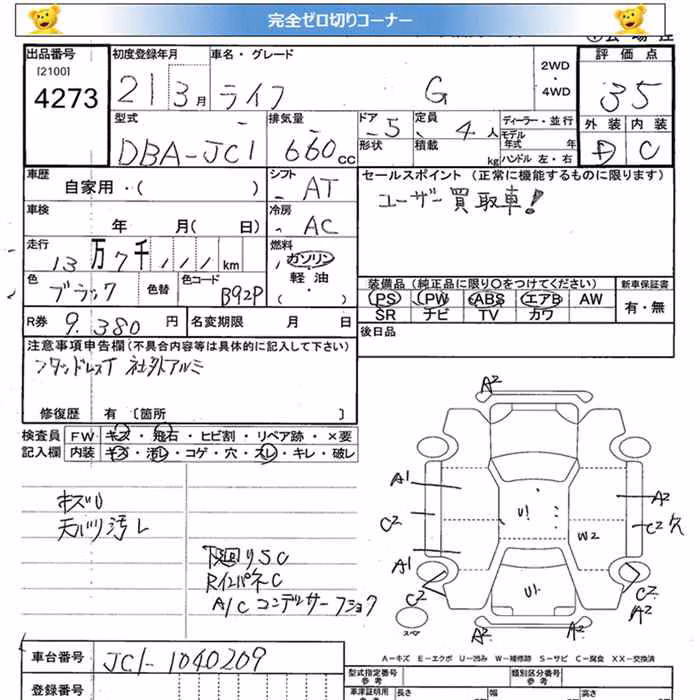 完全ゼロ切りコーナー
出品番号 初度登録年月 車名・グレード 2WD・4WD 評価点
[2100]
4273 21 3月 ライフ G 35
型式 排気量 ドア 5 定員 4人 ディーラー・並行 外装 内装
DBA-JC1 660cc 形状 積載 kg モデル年式 年 C
ハンドル 左・右
車歴 シフト AT セールスポイント(正常に機能するものに限ります)
自家用・( ) ユーザー買取車!
車検 冷房 AC
年 月( 日)
走行 13万7千111km 燃料 ガソリン
軽油
・
( )
色 ブラック 色替 色コード B92P
装備品(純正品に限り○をつけてください) 新車保証書
PS PW ABS エアB AW 有・無
SR ナビ TV カワ
R券 9.380円 名変期限 月 日 後日品
注意事項申告欄(不具合内容等は具体的に記入して下さい)
スタッドレスT 社外アルミ
修復歴 有 [箇所 ]
検査員 FW キズ・飛石・ヒビ割・リペア跡・×要
記入欄 内装 キズ・汚レ・コゲ・穴・スレ・キレ・破レ
天バリ汚レ
下回りSC
RインパネC
A/Cコンデンサー
A2
A1
A2
C2
U!
C2
W2
A1
C2
U!
C2
A2
スペア
A2
A2
A-キズ E-エクボ U-凹み W-補修跡 S-サビ C-腐食 XX-交換済
車台番号 JC1-1040209
型式指定番号 参考 類別区分番号 参考
登録番号 車庫証明用 参考 長さ 幅 高さ